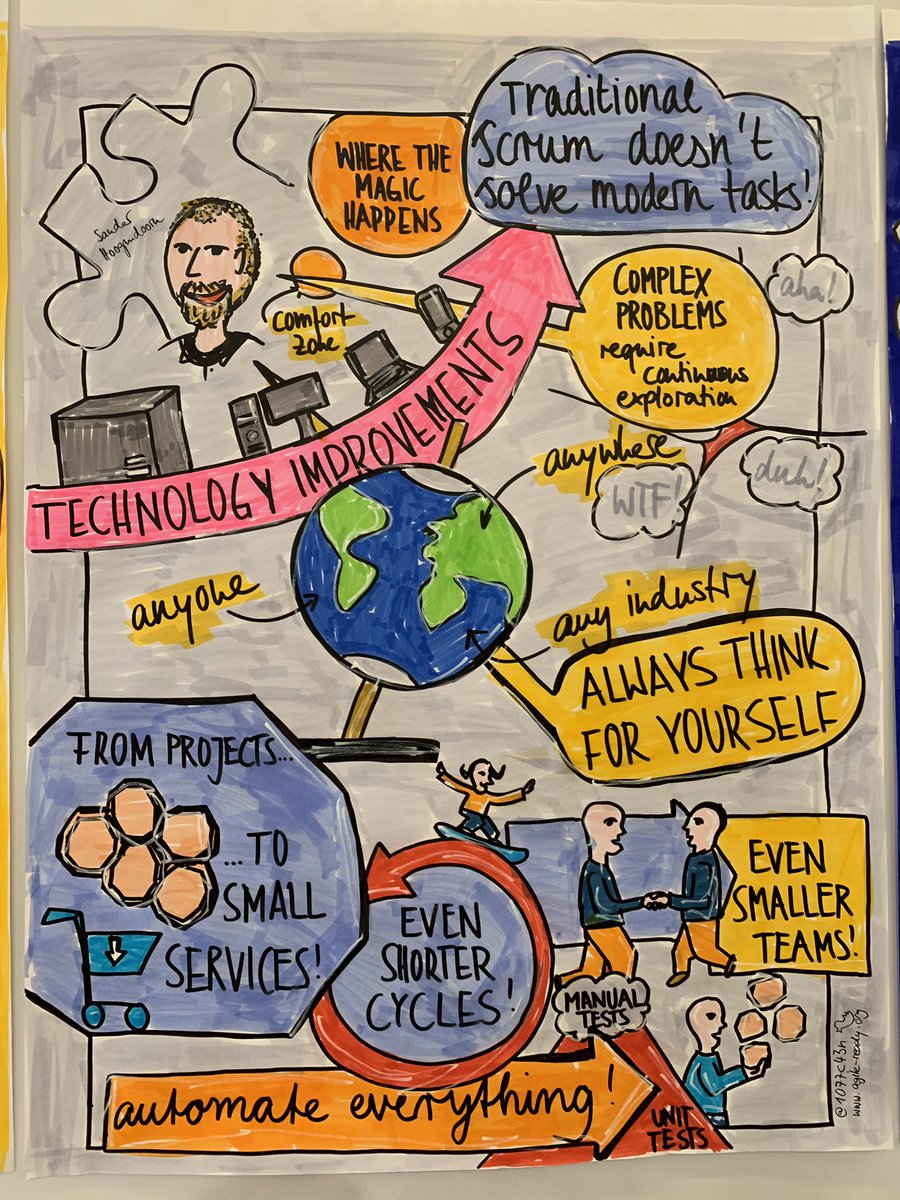 Traditional
Scrum doesn't
solve modern tasks!
WHERE THE
MAGIC
HAPPENS
Sander
Hoogendoorn
comfort-
zone
COMPLEX
PROBLEMS
require
continuous
exploration
aha!
TECHNOLOGY IMPROVEMENTS
anywhere
WTF!
duh!
anyone
any industry
ALWAYS THINK
FOR YOURSELF
FROM PROJECTS...
...TO
SMALL
SERVICES!
EVEN
SHORTER
CYCLES!
EVEN
SMALLER
TEAMS!
MANUAL
TESTS
automate everything!
UNIT
TESTS
@1077c43n
www.agile-ready.org